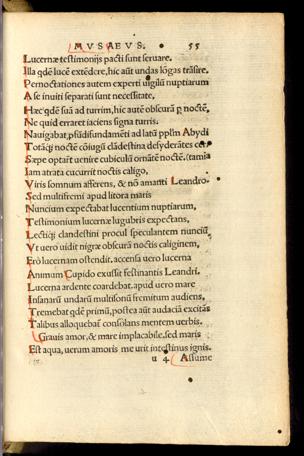 MVSAEVS. 55
Lucernæ testimonijs pacti sunt seruare.
Illa qdē lucē extēdere, hic aūt undas lōgas trāsire.
Pernoctationes autem experti uigilū nuptiarum
A se inuiti separati sunt necessitate,
Hæc qdē suā ad turrim, hic autē obscurā p noctē,
Ne quid erraret iaciens signa turris.
Nauigabat, pfūdifundamēti ad latā pplm Abydi
Totāq; noctē cōiugū clādestina desyderātes cer-
Sæpe optarūt uenire cubiculū ornātē noctē. (tamia
Iam atrata cucurrit noctis caligo,
Viris somnum afferens, & nō amanti Leandro.
Sed multifremi apud litora maris
Nuncium expectabat lucentium nuptiarum,
Testimonium lucernæ lugubris expectans,
Lecticq; clandestini procul speculantem nunciū,
Vt uero uidit nigræ obscurā noctis caliginem,
Ero lucernam ostendit. accensa uero lucerna
Animum Cupido exussit festinantis Leandri.
Lucerna ardente coardebat. apud uero mare
Insanarū undarū multisonū fremitum audiens,
Tremebat qdē primū, postea aūt audaciā excitās
Talibus alloquebat consolans mentem uerbis.
Grauis amor, & mare implacabile. sed maris
Est aqua, uerum amoris me urit intestinus ignis.
u 4 Assume